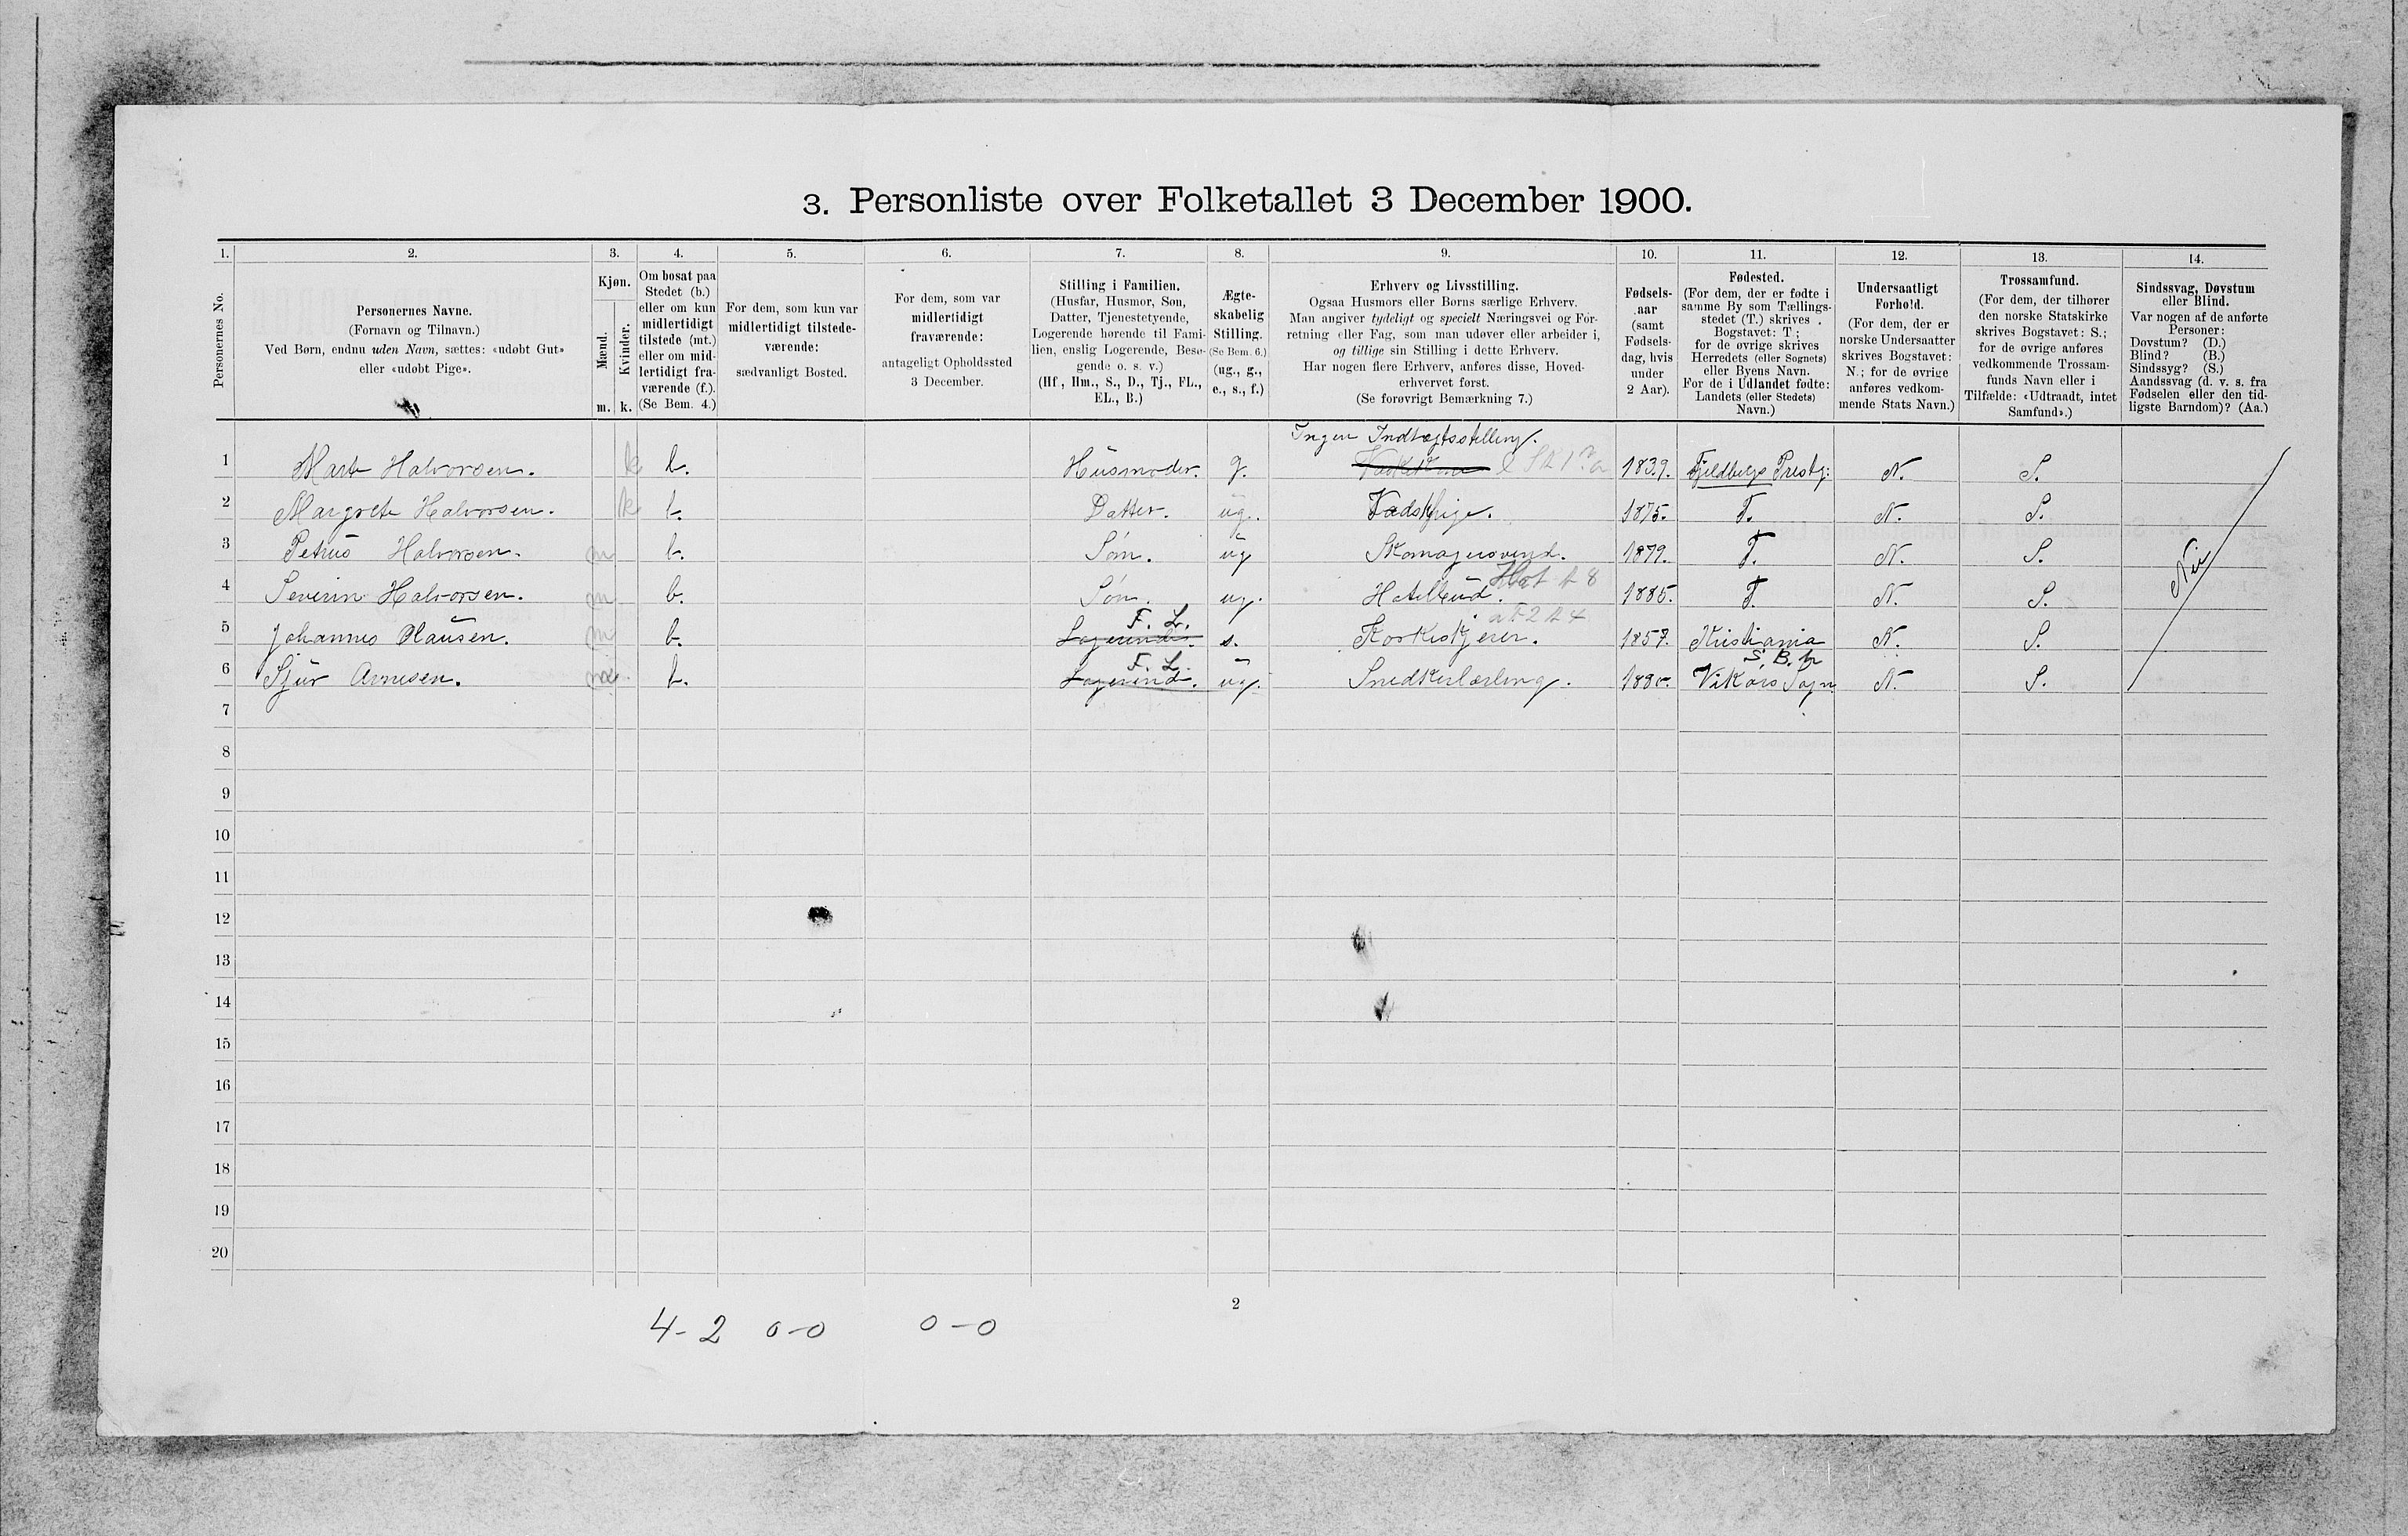 3. Personliste over Folketallet 3 December 1900.
1. 2. 3. 4. 5. 6. 7. 8. 9. 10. 11. 12. 13. 14.
Personernes No.
Personernes Navne.
(Fornavn og Tilnavn.)
Ved Børn, endnu uden Navn, sættes: «udøbt Gut»
eller «udøbt Pige».
Kjøn.
Mænd.
Kvinder.
m. k.
Om bosat paa
Stedet (b.)
eller om kun
midlertidigt
tilstede (mt.)
eller om mid-
lertidigt fra-
værende (f.).
(Se Bem. 4.)
For dem, som kun var
midlertidigt tilstede-
værende:
sædvanligt Bosted.
For dem, som var
midlertidigt
fraværende:
antageligt Opholdssted
3 December.
Stilling i Familien.
(Husfar, Husmor, Søn,
Datter, Tjenestetyende,
Logerende hørende til Fami-
lien, enslig Logerende, Besø-
gende o. s. v.)
(Hf, Hm., S., D., Tj., FL.,
EL., B.)
Ægte-
skabelig
Stilling.
(Se Bem. 6.)
(ug., g.,
e., s., f.)
Erhverv og Livsstilling.
Ogsaa Husmors eller Børns særlige Erhverv.
Man angiver tydeligt og specielt Næringsvei og For-
retning eller Fag, som man udøver eller arbeider i,
og tillige sin Stilling i dette Erhverv.
Har nogen flere Erhverv, anføres disse, Hoved-
erhvervet først.
(Se forøvrigt Bemærkning 7.)
Fødsels-
aar
(samt
Fødsels-
dag, hvis
under
2 Aar).
Fødested.
(For dem, der er fødte i
samme By som Tællings-
stedet (T.) skrives
Bogstavet: T;
for de øvrige skrives
Herredets (eller Sognets)
eller Byens Navn.
For de i Udlandet fødte:
Landets (eller Stedets)
Navn.)
Undersaatligt
Forhold.
(For dem, der er
norske Undersaatter
skrives Bogstavet:
N.; for de øvrige
anføres vedkom-
mende Stats Navn.)
Trossamfund.
(For dem, der tilhører
den norske Statskirke
skrives Bogstavet: S.;
for de øvrige anføres
vedkommende Trossam-
funds Navn eller i
Tilfælde: «Udtraadt, intet
Samfund».)
Sindssvag, Døvstum
eller Blind.
Var nogen af de anførte
Personer:
Døvstum? (D.)
Blind? (B.)
Sindssyg? (S.)
Aandssvag (d. v. s. fra
Fødselen eller den tid-
ligste Barndom)? (Aa.)
Ingen Indtægtsstilling.
1 Halvorsen. k b. Husmoder. g. 1839. Fjeldbergs Prestg: N. S.
2 Margrete Halvorsen. k b. Datter. ug. 1875. T. N. S.
3 Petrus Halvorsen. m b. Søn. ug 1879. T. N. S.
4 Severin Halvorsen. m b. Søn. ug. Hotelbud. 1885. T. N. S.
F. L.
5 Johannes Olausen. m b. Logerende. s. Korkskjerer. 1857. Kristiania N. S.
F. L. S. B.
6 Sjur Arnesen. b. Logerend. ug. Snedkerlærling. Vikørs Sogn N. S.
7
8
9
10
11
12
13
14
15
16
17
18
19
20
2
4-2 0-0 0-0